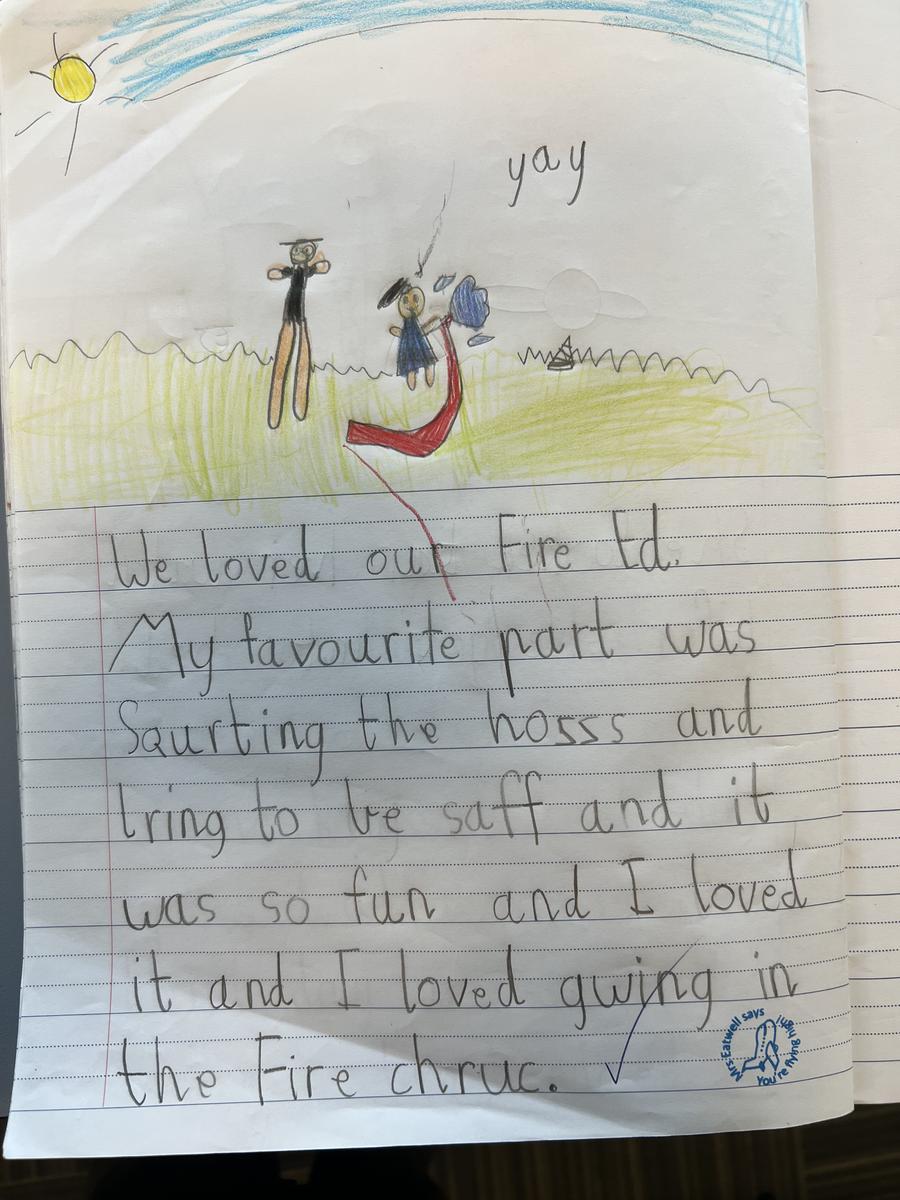 yay
We loved our Fire Ed.
My favourite part was
Squrting the hosss and
tring to be saff and it
was so fun and I loved
it and I loved gwing in
the Fire chruc.
Mrs Eatwell says
You're flying high!